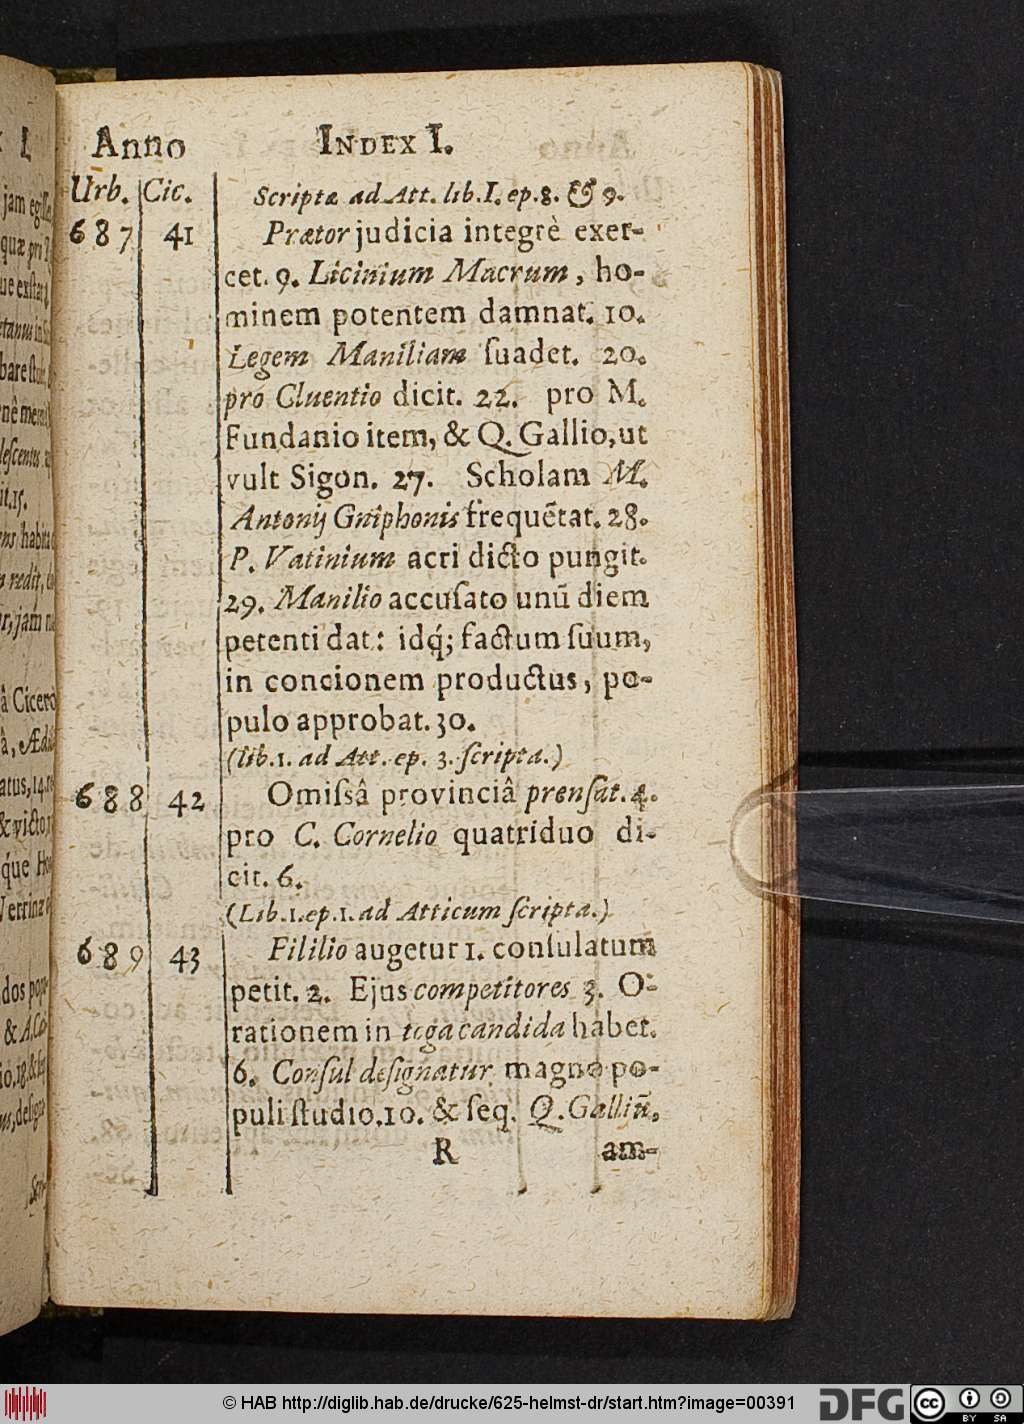 Anno INDEX I.
Urb. Cic. Scriptæ ad Att. lib. I. ep. 8. & 9.
687 41 Prætor judicia integrè exer-
cet. 9. Licinium Macrum, ho-
minem potentem damnat. 10.
Legem Maniliam ſuadet. 20.
pro Cluentio dicit. 22. pro M.
Fundanio item, & Q. Gallio, ut
vult Sigon. 27. Scholam M.
Antonij Gniphonis frequẽtat. 28.
P. Vatinium acri dicto pungit.
29. Manilio accuſato unũ diem
petenti dat: idq́; factum ſuum,
in concionem productus, po-
pulo approbat. 30.
(lib. 1. ad Att. ep. 3. ſcripta.)
688 42 Omiſsâ provinciâ prenſat. 4.
pro C. Cornelio quatriduo di-
cit. 6.
(Lib. 1. ep. 1. ad Atticum ſcripta.)
689 43 Fililio augetur 1. conſulatum
petit. 2. Ejus competitores 3. O-
rationem in toga candida habet.
6. Conſul deſignatur magno po-
puli ſtudio. 10. & ſeq. Q. Galliũ,
R am-
© HAB http://diglib.hab.de/drucke/625-helmst-dr/start.htm?image=00391
DFG
cc BY SA